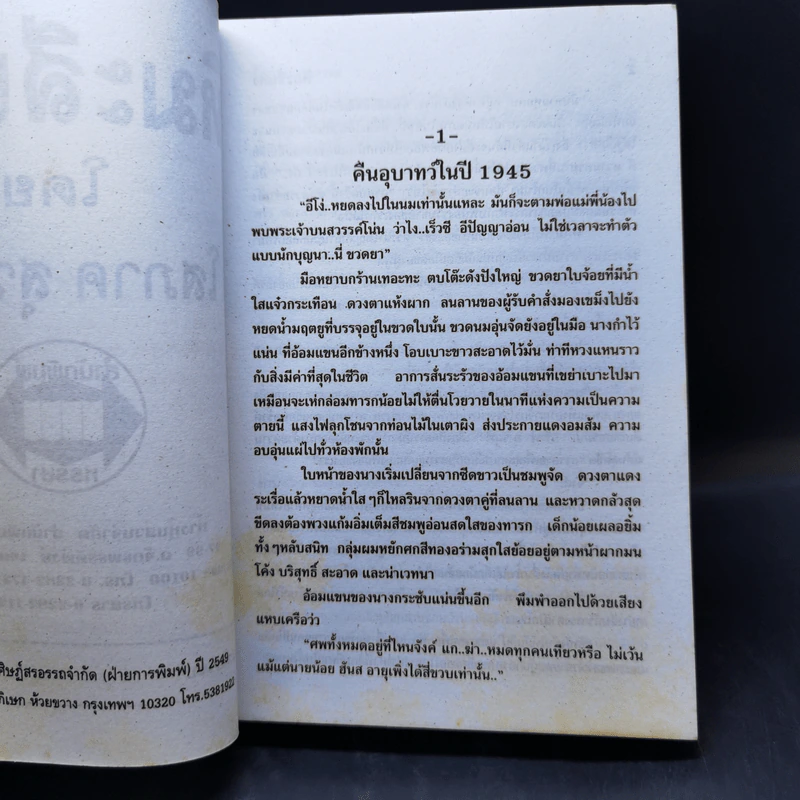 โดย
โสภาค สุว
ศิษฎ์สรอรรถจำกัด (ฝ่ายการพิมพ์) ปี 2549
ห้วยขวาง กรุงเทพฯ 10320 โทร.5381922
-1-
คืนอุบาทว์ในปี 1945
“อีโง่..หยดลงไปในนมเท่านั้นแหละ มันก็จะตามพ่อแม่พี่น้องไป
พบพระเจ้าบนสวรรค์โน่น ว่าไง..เร็วซี อีปัญญาอ่อน ไม่ใช่เวลาจะทำตัว
แบบนักบุญนา..นี่ ขวดยา”
มือหยาบกร้านเทอะทะ ตบโต๊ะดังปังใหญ่ ขวดยาใบจ้อยที่มีน้ำ
ใสแจ๋วกระเทือน ดวงตาแห้งผาก ลนลานของผู้รับคำสั่งมองเขม็งไปยัง
หยดน้ำมฤตยูที่บรรจุอยู่ในขวดใบนั้น ขวดนมอุ่นจัดยังอยู่ในมือ นางกำไว้
แน่น ที่อ้อมแขนอีกข้างหนึ่ง โอบเบาะขาวสะอาดไว้มั่น ท่าทีหวงแหนราว
กับสิ่งมีค่าที่สุดในชีวิต อาการสั่นระรัวของอ้อมแขนที่เขย่าเบาะไปมา
เหมือนจะเห่กล่อมทารกน้อยไม่ให้ตื่นโวยวายในนาทีแห่งความเป็นความ
ตายนี้ แสงไฟลุกโชนจากท่อนไม้ในเตาผิง ส่งประกายแดงอมส้ม ความ
อบอุ่นแผ่ไปทั่วห้องพักนั้น
ใบหน้าของนางเริ่มเปลี่ยนจากซีดขาวเป็นชมพูจัด ดวงตาแดง
ระเรื่อแล้วหยาดน้ำใสๆก็ไหลรินจากดวงตาคู่ที่ลนลาน และหวาดกลัวสุด
ขีดลงต้องพวงแก้มอิ่มเต็มสีชมพูอ่อนสดใสของทารก เด็กน้อยเผลอยิ้ม
ทั้งๆหลับสนิท กลุ่มผมหยักศกสีทองอร่ามสุกใสย้อยอยู่ตามหน้าผากมน
โค้ง บริสุทธิ์ สะอาด และน่าเวทนา
อ้อมแขนของนางกระชับแน่นขึ้นอีก พึมพำออกไปด้วยเสียง
แหบเครือว่า
“ศพทั้งหมดอยู่ที่ไหนจังค์ แก..ฆ่า..หมดทุกคนเทียวหรือ ไม่เว้น
แม้แต่นายน้อย ฮันส อายุเพิ่งได้สี่ขวบเท่านั้น..”